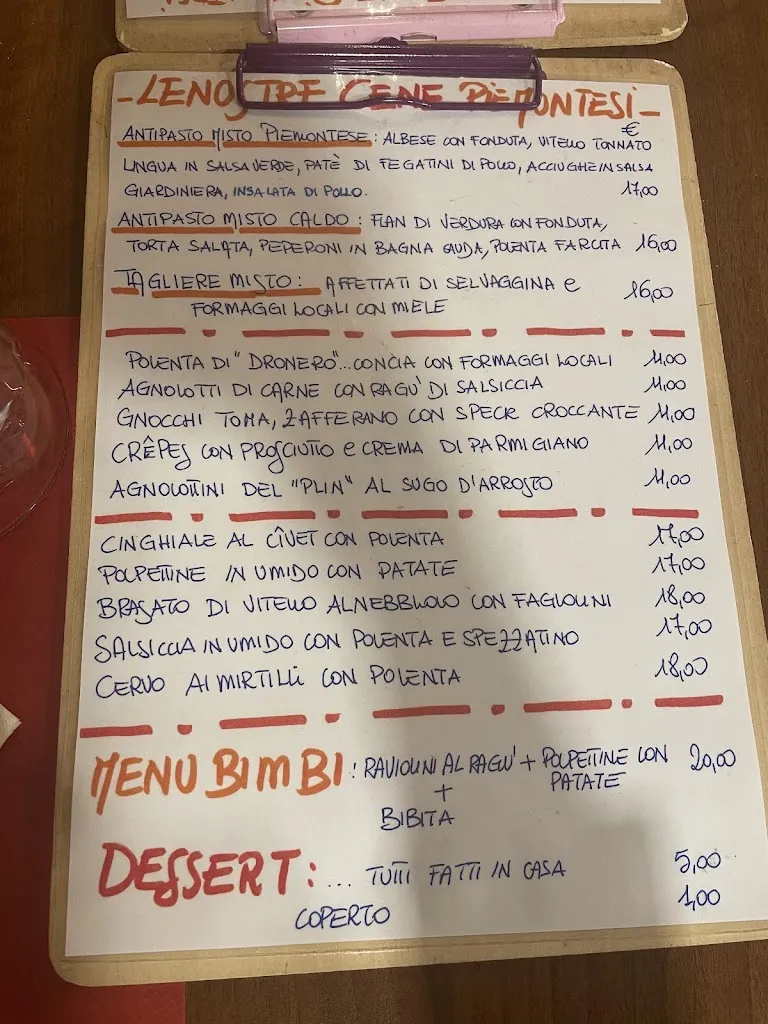 - LE NOSTRE CENE PIEMONTESI -
€
ANTIPASTO MISTO PIEMONTESE : ALBESE CON FONDUTA, VITELLO TONNATO
LINGUA IN SALSA VERDE, PATÈ DI FEGATINI DI POLLO, ACCIUGHE IN SALSA
GIARDINIERA, INSALATA DI POLLO. 17,00
ANTIPASTO MISTO CALDO : FLAN DI VERDURA CON FONDUTA,
TORTA SALATA, PEPERONI IN BAGNA CAUDA, POLENTA FARCITA 16,00
TAGLIERE MISTO : AFFETTATI DI SELVAGGINA e
FORMAGGI LOCALI CON MIELE 16,00
POLENTA DI "DRONERO"... CONCIA CON FORMAGGI LOCALI 11,00
AGNOLOTTI DI CARNE CON RAGU' DI SALSICCIA 11,00
GNOCCHI TOMA, ZAFFERANO CON SPECK CROCCANTE 11,00
CRÊPES CON PROSCIUTTO e CREMA DI PARMIGIANO 11,00
AGNOLOTTINI DEL "PLIN" AL SUGO D'ARROSTO 11,00
CINGHIALE AL CÎVET CON POLENTA 17,00
POLPETTINE IN UMIDO CON PATATE 17,00
BRASATO DI VITELLO AL NEBBIOLO CON FAGIOLINI 18,00
SALSICCIA IN UMIDO CON POLENTA E SPEZZATINO 17,00
CERVO AI MIRTILLI CON POLENTA 18,00
MENU BIMBI : RAVIOLINI AL RAGU' + POLPETTINE CON 20,00
PATATE
+
BIBITA
DESSERT : ... TUTTI FATTI IN CASA 5,00
COPERTO 1,00